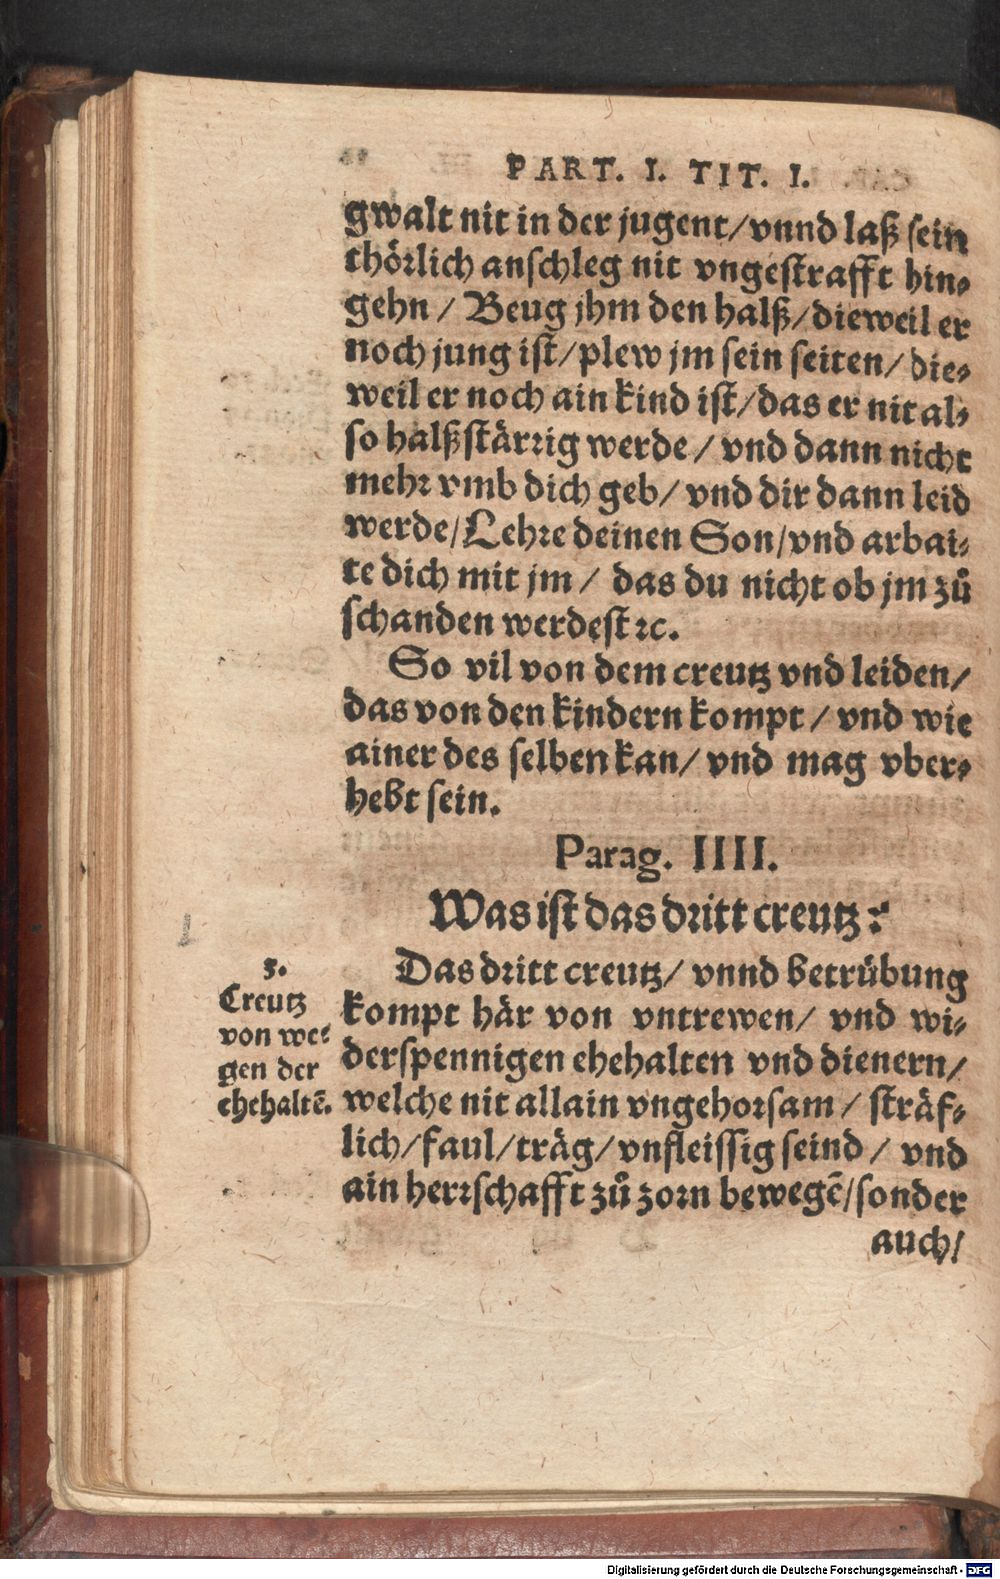 PART. I. TIT. I.
gwalt nit in der jugent/ vnnd laß sein
thörlich anschleg nit vngestrafft hin⸗
gehn / Beug jhm den halß/ dieweil er
noch jung ist/ plew jm sein seiten/ die⸗
weil er noch ain kind ist/ das er nit al⸗
so halßstärrig werde / vnd dann nicht
mehr vmb dich geb/ vnd dir dann leid
werde/ Lehre deinen Son/ vnd arbai⸗
te dich mit jm / das du nicht ob jm zů
schanden werdest ꝛc.
So vil von dem creutz vnd leiden/
das von den kindern kompt / vnd wie
ainer des selben kan/ vnd mag vber⸗
hebt sein.
Parag. IIII.
Was ist das dritt creutz?
3.
Creutz
von we⸗
gen der
ehehaltē.
Das dritt creutz/ vnnd betrübung
kompt här von vntrewen/ vnd wi⸗
derspennigen ehehalten vnd dienern/
welche nit allain vngehorsam / sträf⸗
lich/ faul/ träg/ vnfleissig seind / vnd
ain herrschafft zů zorn bewegē/ sonder
auch/
Digitalisierung gefördert durch die Deutsche Forschungsgemeinschaft - DFG